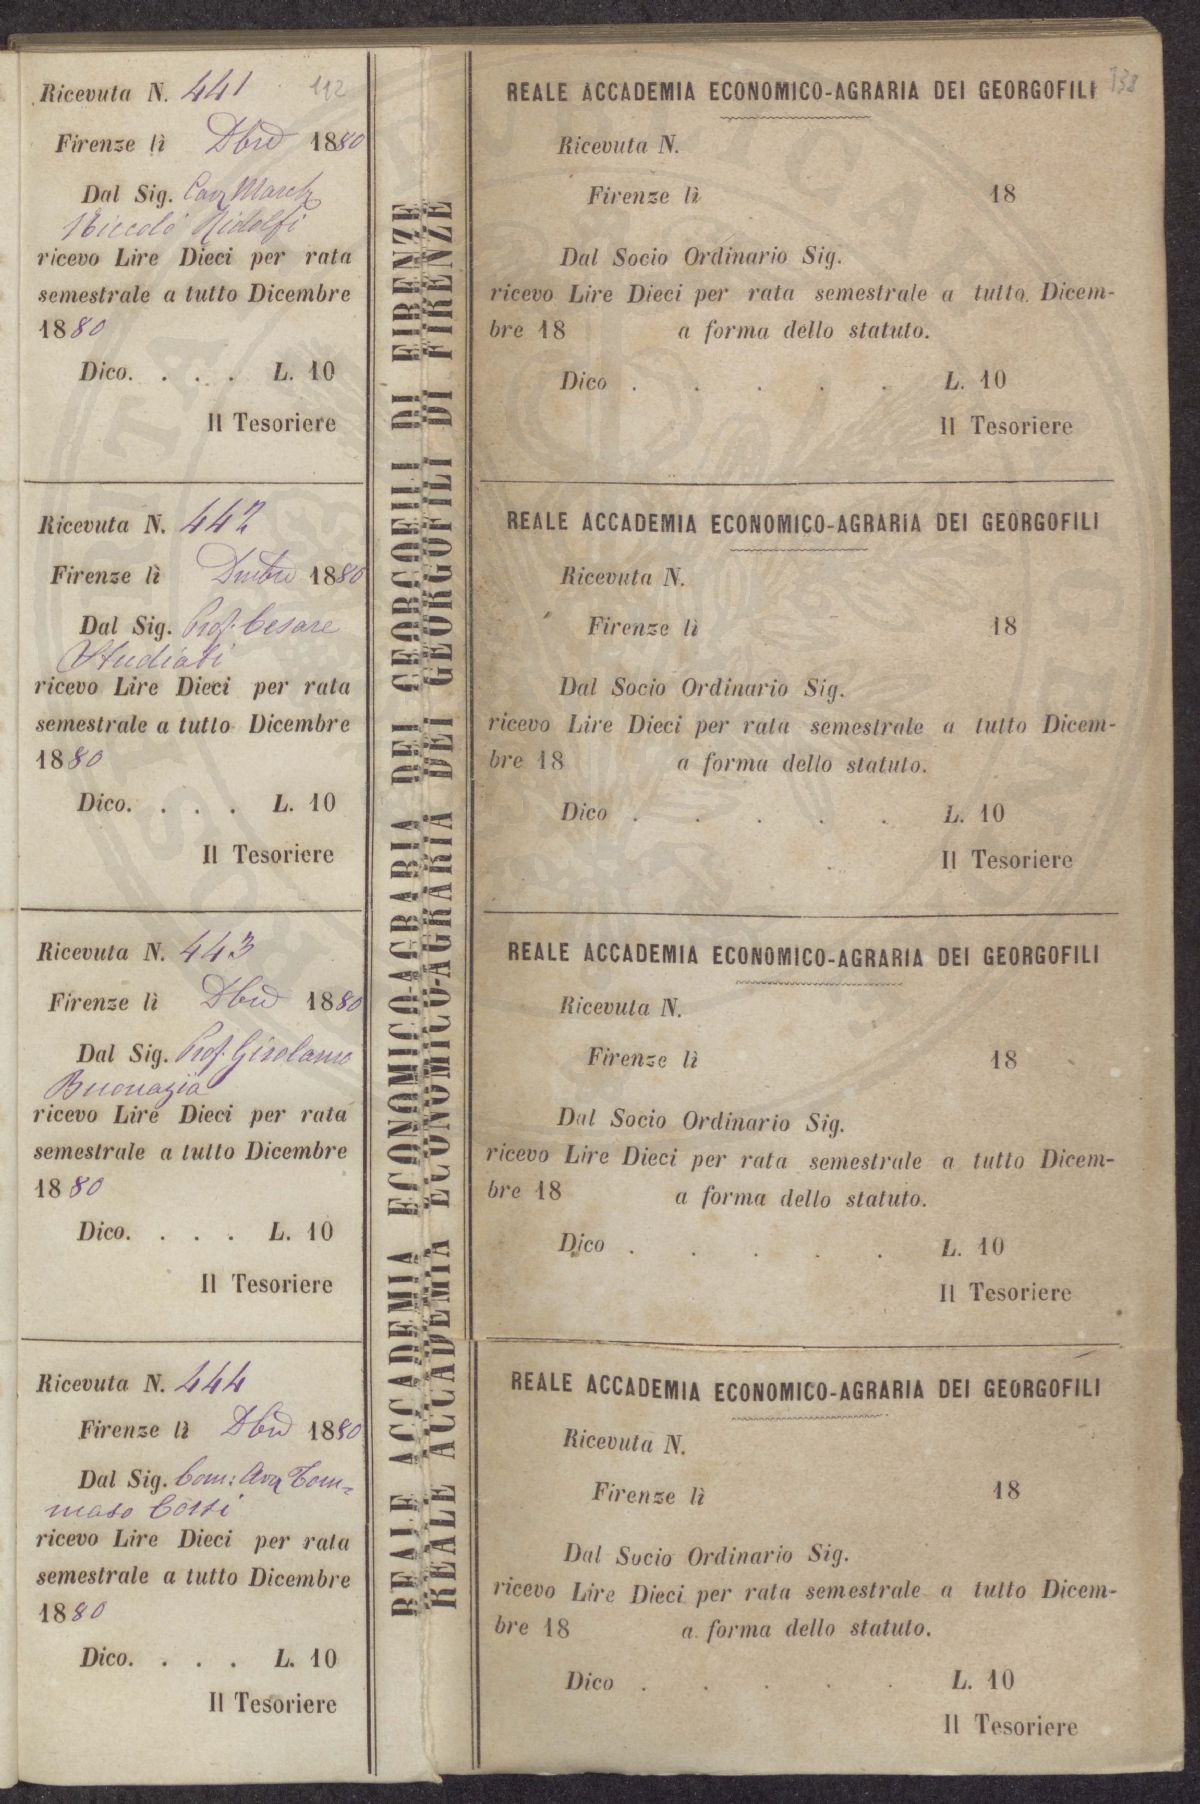 Ricevuta N. 441 112
Firenze lì Dbre 1880
Dal Sig. Cav March
Niccolò Ridolfi
ricevo Lire Dieci per rata
semestrale a tutto Dicembre
1880
Dico. . . . L. 10
Il Tesoriere
Ricevuta N. 442
Firenze lì Dmbre 1880
Dal Sig. Prof. Cesare
Studiati
ricevo Lire Dieci per rata
semestrale a tutto Dicembre
1880
Dico. . . . L. 10
Il Tesoriere
Ricevuta N. 443
Firenze lì Dbre 1880
Dal Sig. Prof. Girolamo
Buonazia
ricevo Lire Dieci per rata
semestrale a tutto Dicembre
1880
Dico. . . . L. 10
Il Tesoriere
Ricevuta N. 444
Firenze lì Dbre 1880
Dal Sig. Com: Avv Tom=
maso Corsi
ricevo Lire Dieci per rata
semestrale a tutto Dicembre
1880
Dico. . . . L. 10
Il Tesoriere
REALE ACCADEMIA ECONOMICO-AGRARIA DEI GEORGOFILI DI FIRENZE
REALE ACCADEMIA ECONOMICO-AGRARIA DEI GEORGOFILI DI FIRENZE
REALE ACCADEMIA ECONOMICO-AGRARIA DEI GEORGOFILI 138
Ricevuta N.
Firenze lì 18
Dal Socio Ordinario Sig.
ricevo Lire Dieci per rata semestrale a tutto Dicem-
bre 18 a forma dello statuto.
Dico . . . . . L. 10
Il Tesoriere
REALE ACCADEMIA ECONOMICO-AGRARIA DEI GEORGOFILI
Ricevuta N.
Firenze lì 18
Dal Socio Ordinario Sig.
ricevo Lire Dieci per rata semestrale a tutto Dicem-
bre 18 a forma dello statuto.
Dico . . . . . L. 10
Il Tesoriere
REALE ACCADEMIA ECONOMICO-AGRARIA DEI GEORGOFILI
Ricevuta N.
Firenze lì 18
Dal Socio Ordinario Sig.
ricevo Lire Dieci per rata semestrale a tutto Dicem-
bre 18 a forma dello statuto.
Dico . . . . . L. 10
Il Tesoriere
REALE ACCADEMIA ECONOMICO-AGRARIA DEI GEORGOFILI
Ricevuta N.
Firenze lì 18
Dal Socio Ordinario Sig.
ricevo Lire Dieci per rata semestrale a tutto Dicem-
bre 18 a forma dello statuto.
Dico . . . . . L. 10
Il Tesoriere